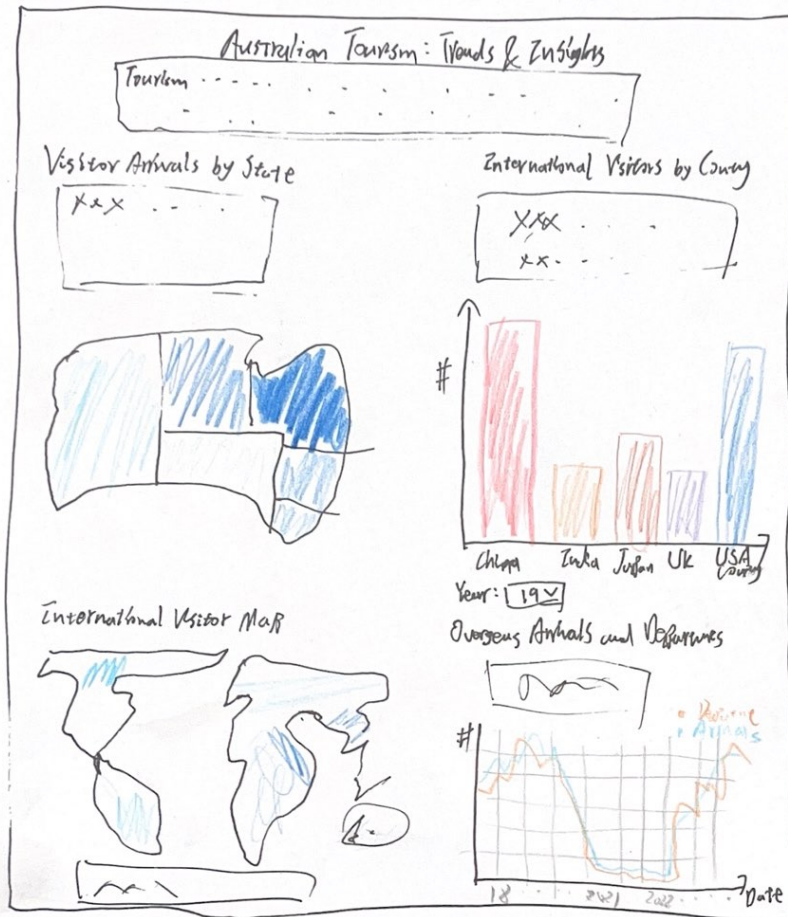 Australian Tourism: Trends & Insights
Tourism
Visitor Arrivals by State
xxx
International Visitors by County
XXX
xx
#
China India Japan UK USA
Year: 19
International Visitor Map
Overseas Arrivals and Departures
Arrivals
#
18 2021 2022 Date